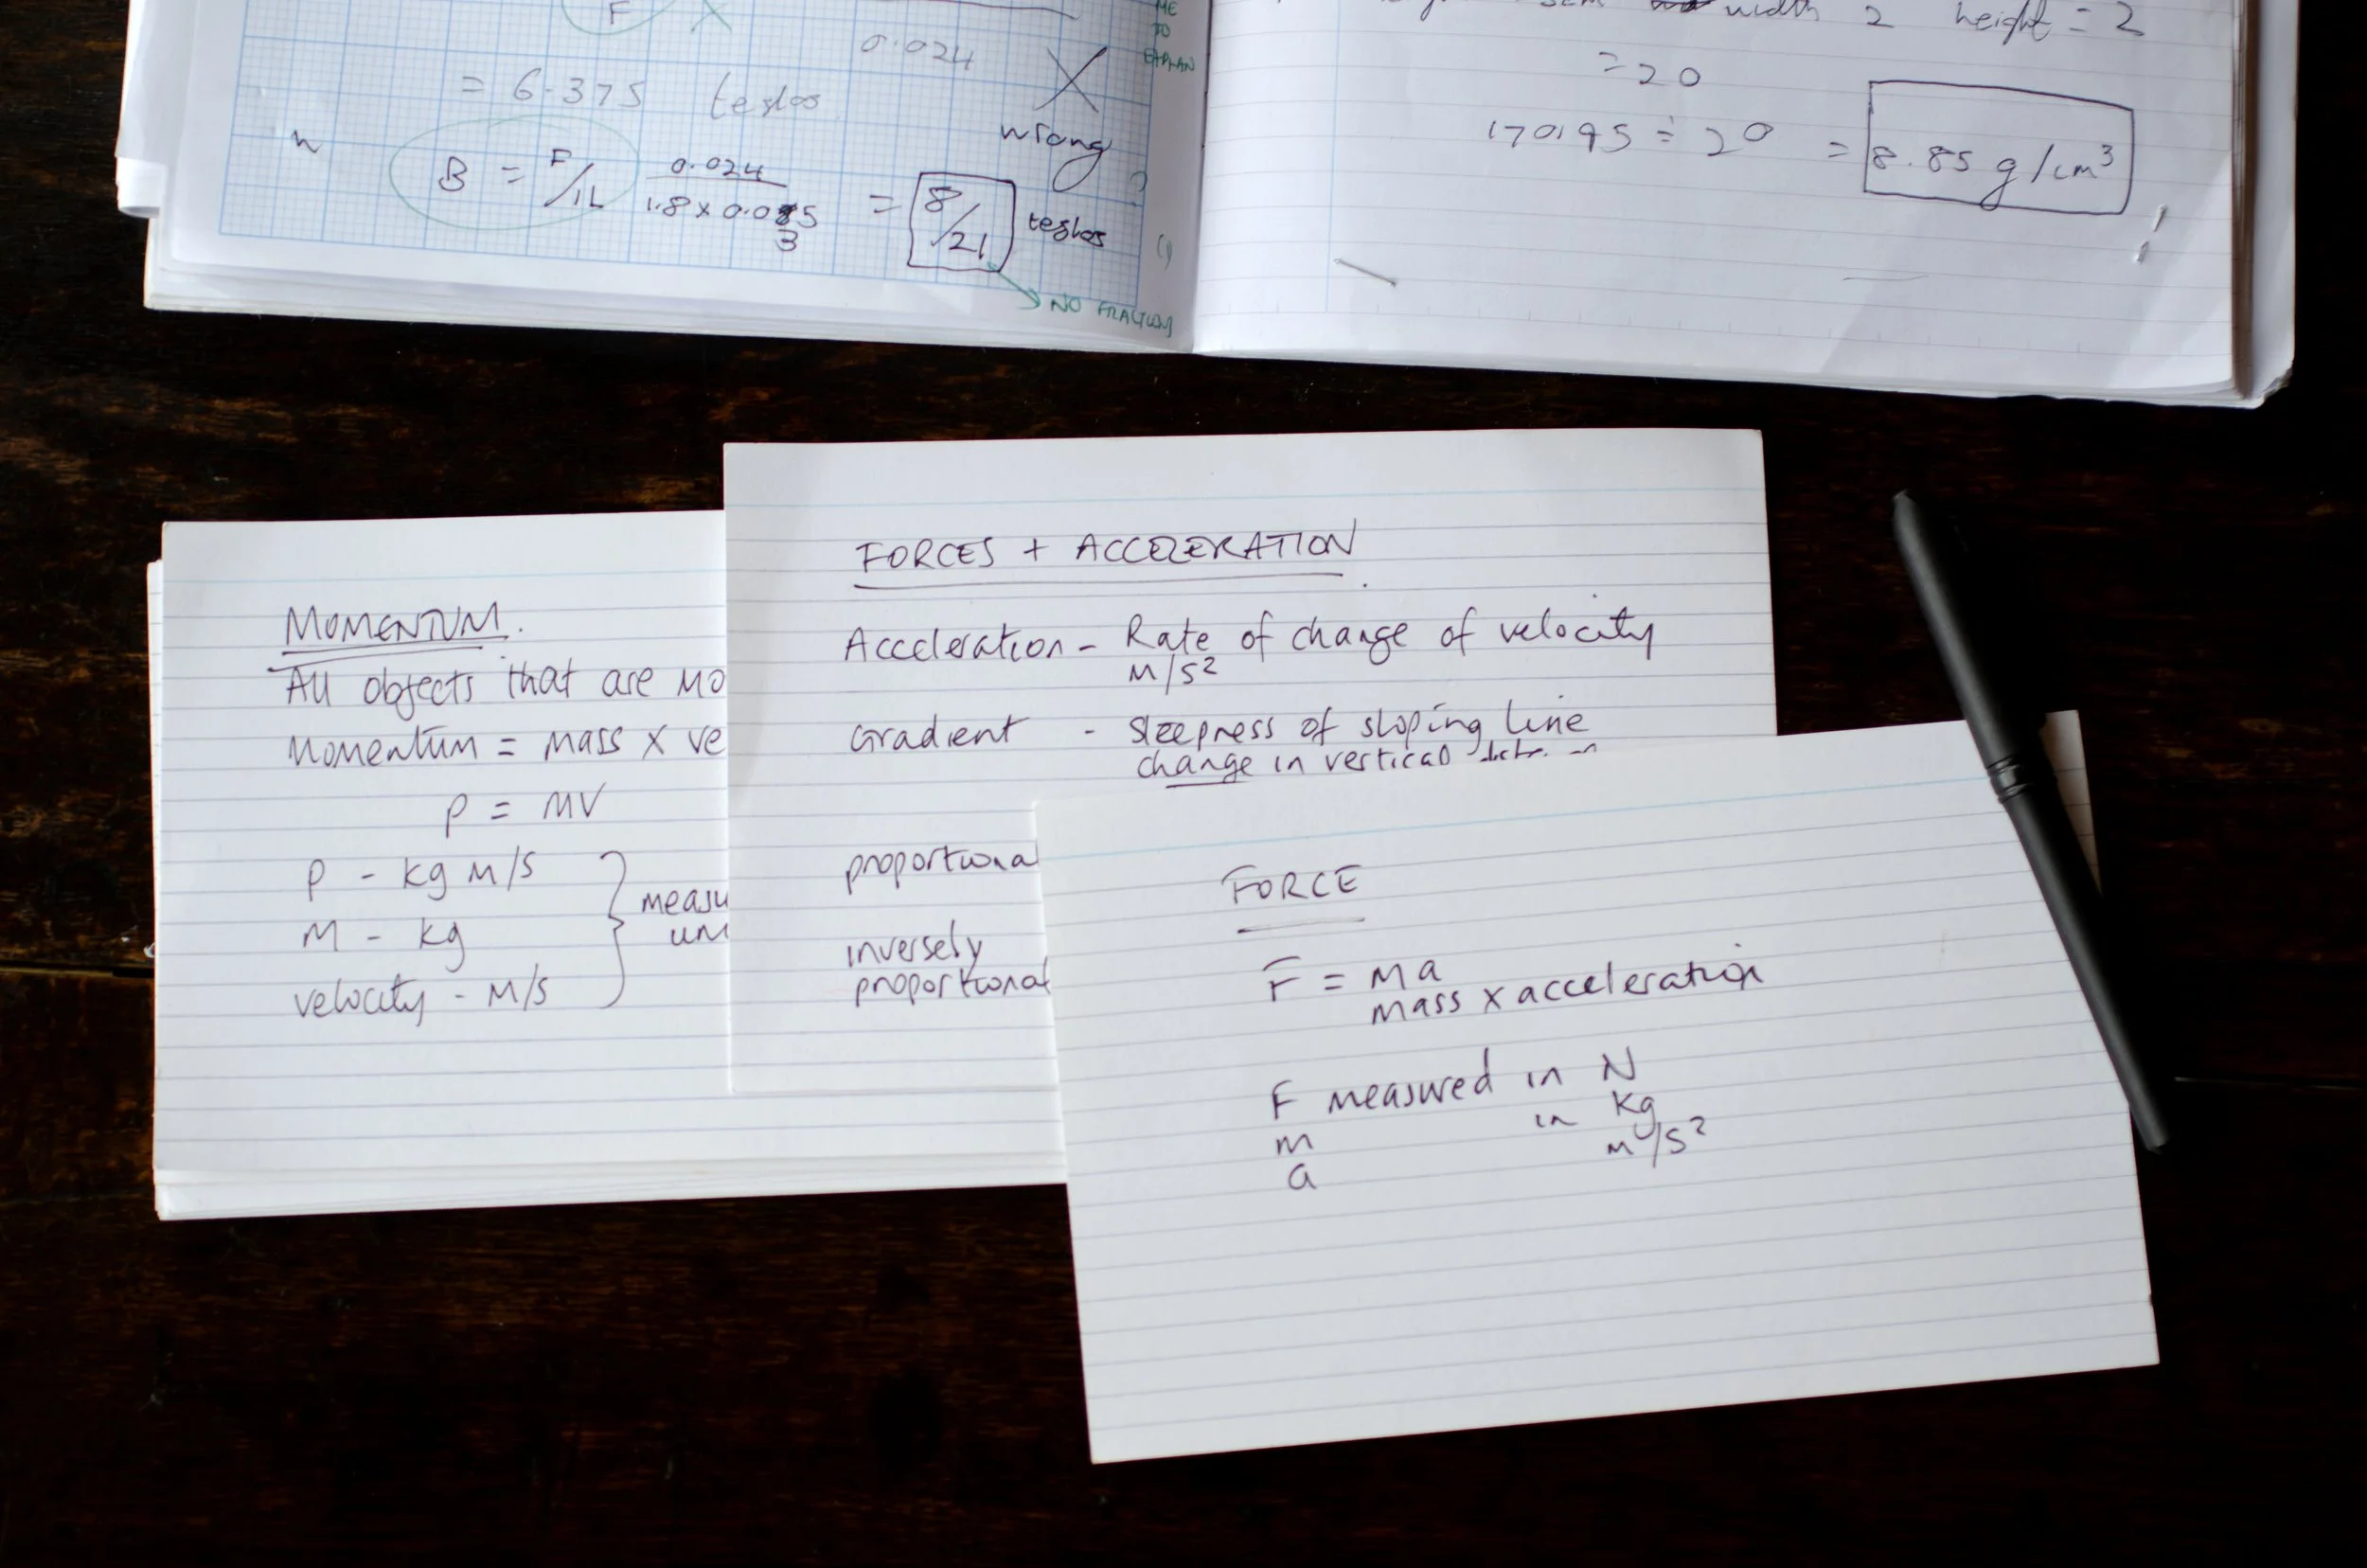 F
0.024
= 6.375 teslas
wrong
B = F/IL 0.024 / 1.8 x 0.035 = 8/21 teslas
NO FRACTIONS
ME
TO
EXPLAIN
width 2 height = 2
= 20
170.95 ÷ 20 = 8.85 g/cm³
MOMENTUM.
All objects that are Mo
Momentum = mass x ve
P = MV
P - kg M/S
M - kg
velocity - M/S
measu
uni
FORCES + ACCELERATION
Acceleration - Rate of change of velocity
M/S²
Gradient - Steepness of sloping line
change in vertical
proportional
inversely
proportional
FORCE
F = Ma
Mass x acceleration
F measured in N
m in kg
a M/S²